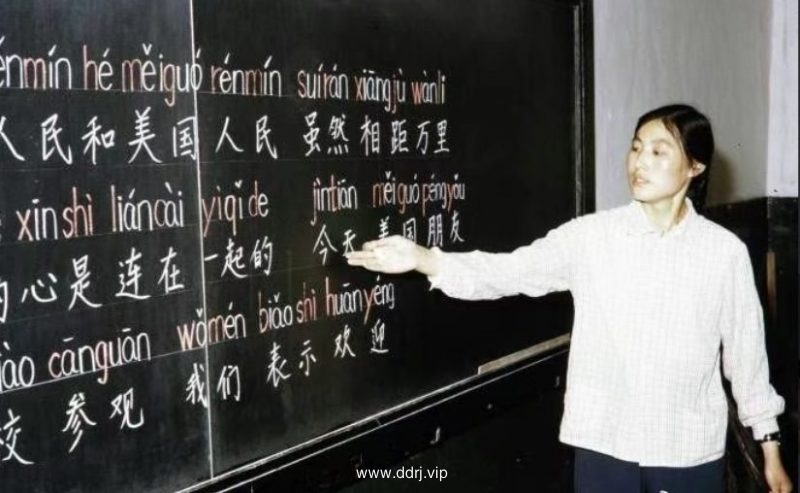 énmín hé měiguó rénmín suírán xiāngjù wànli
人民和美国人民 虽然相距万里
xīnshì liáncài yìqǐde jīntiān měiguó péngyǒu
的心是连在一起的 今天美国朋友
iào cānguān wǒmén biǎoshì huānyéng
校 参观 我们 表示 欢迎
www.ddrj.vip